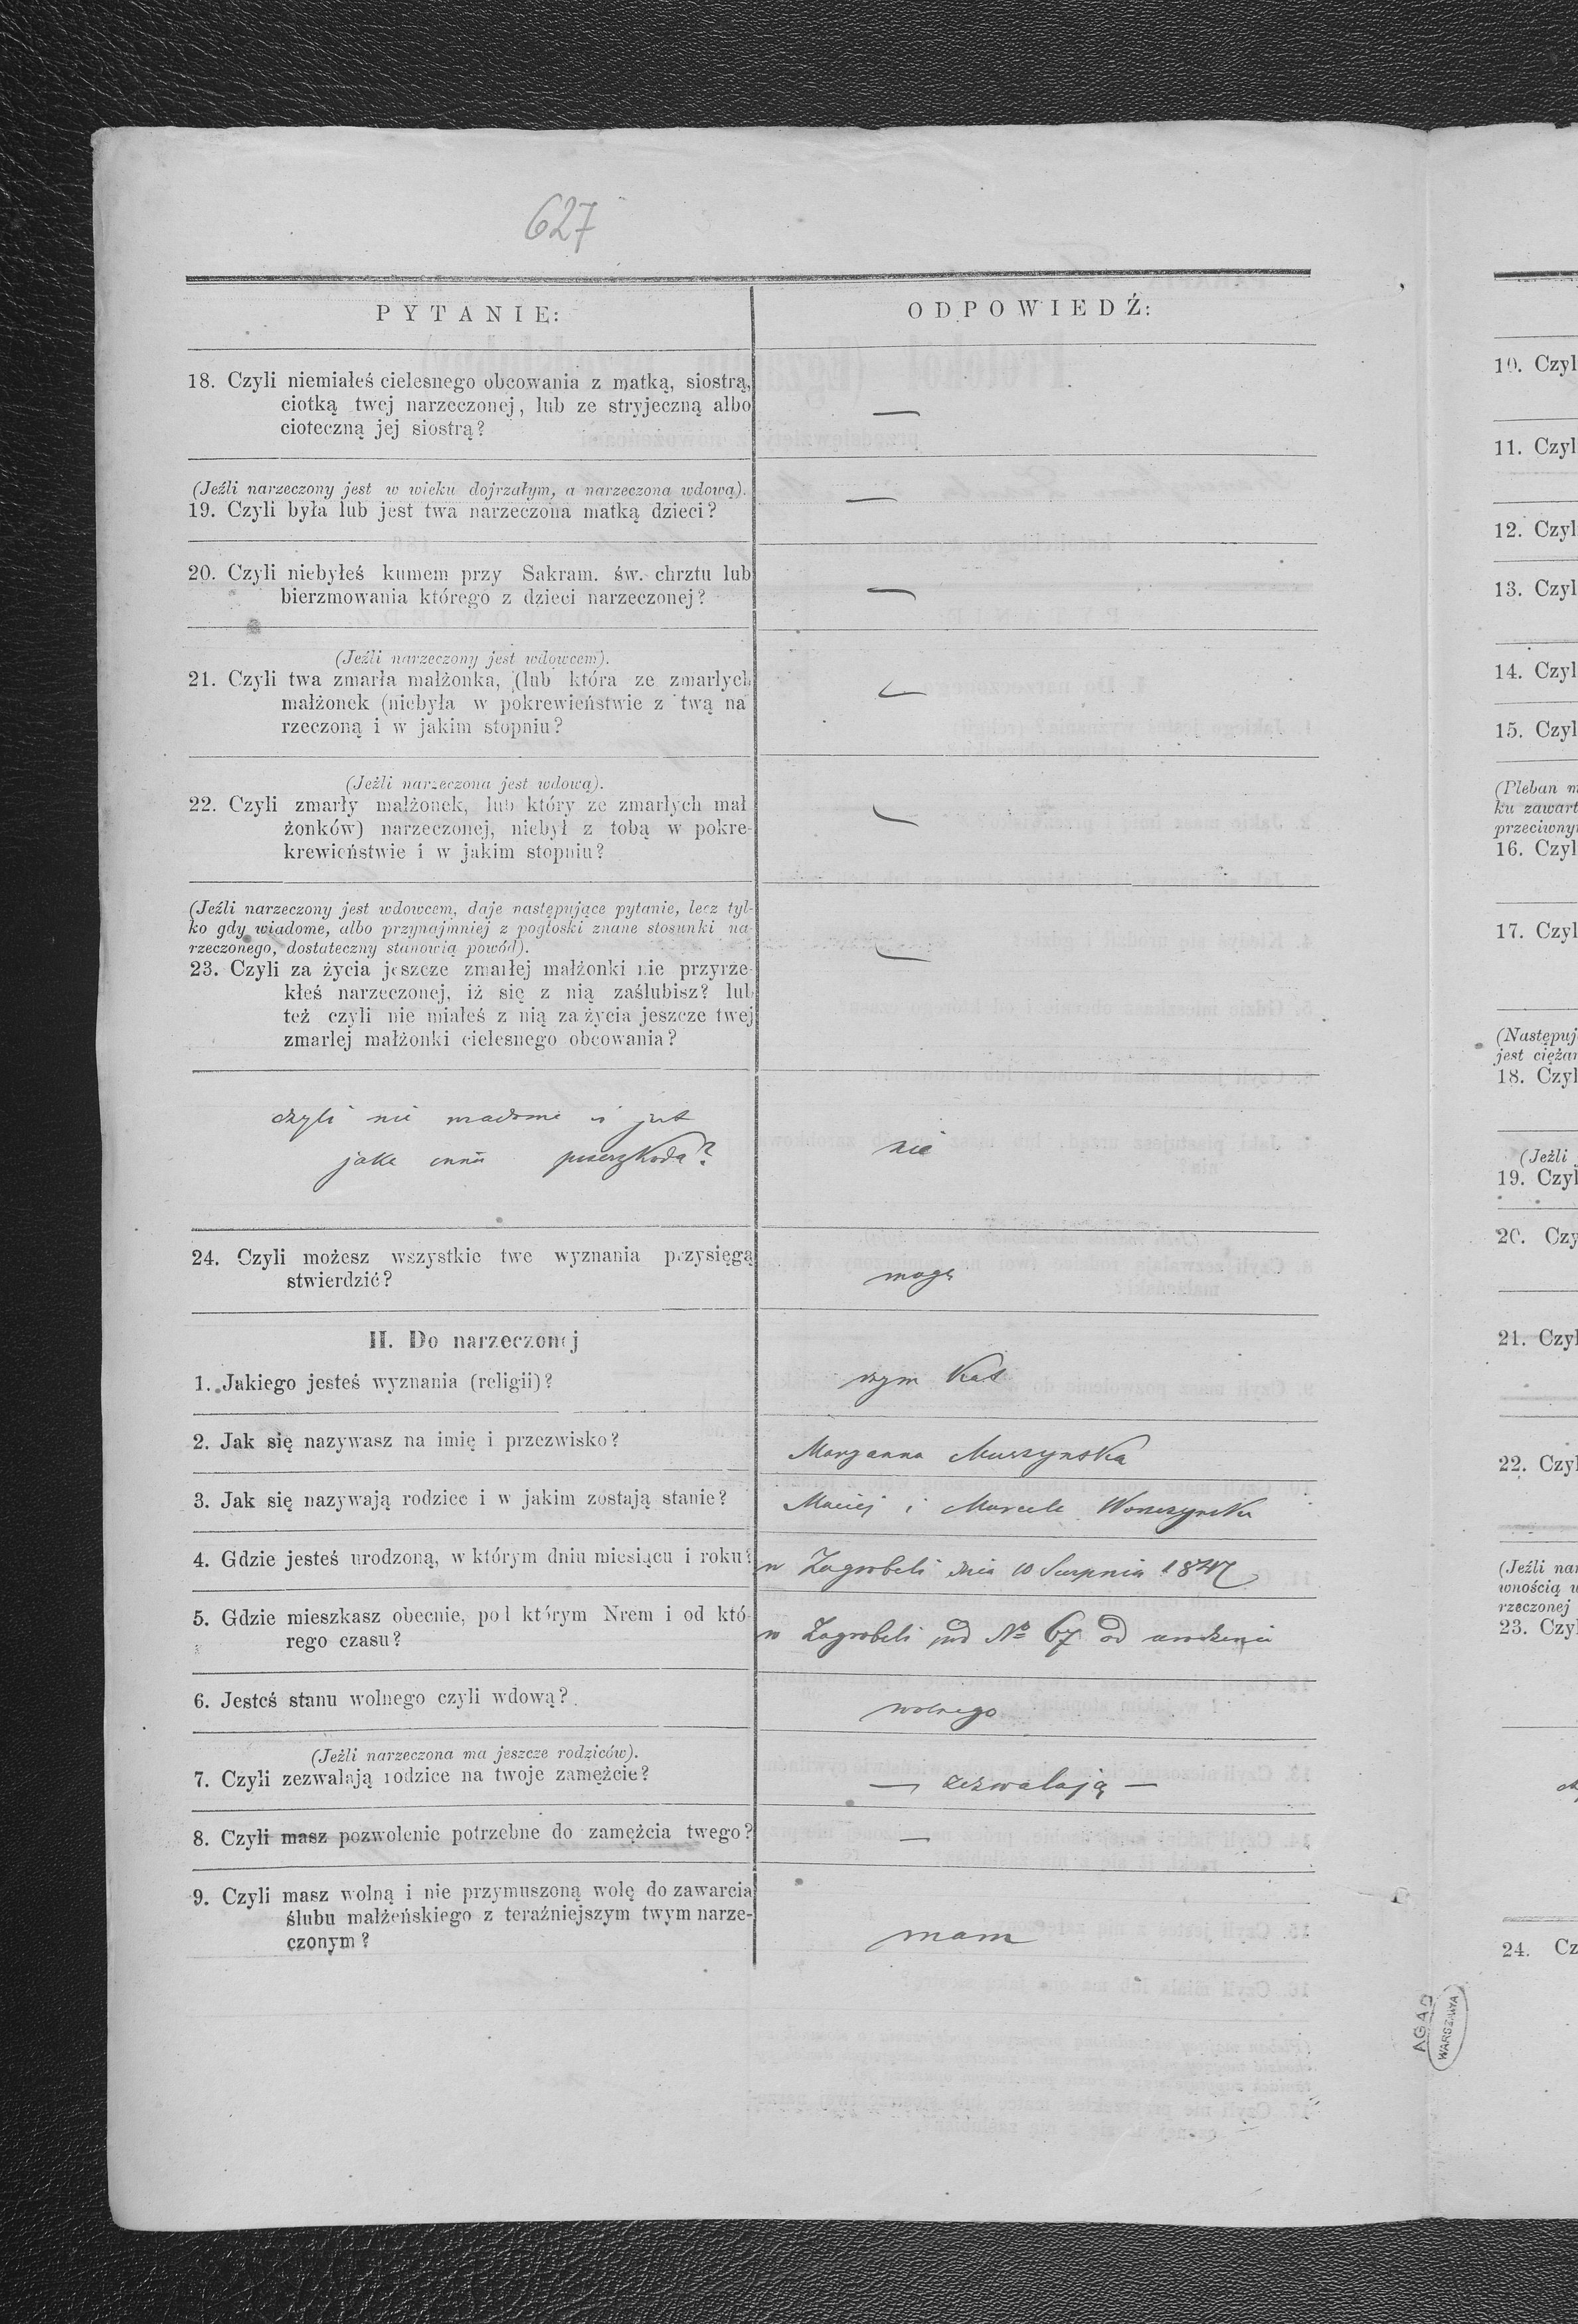 627
PYTANIE:
ODPOWIEDŹ:
18. Czyli niemiałeś cielesnego obcowania z matką, siostrą,
ciotką twej narzeczonej, lub ze stryjeczną albo
cioteczną jej siostrą?
—
(Jeźli narzeczony jest w wieku dojrzałym, a narzeczona wdową).
19. Czyli była lub jest twa narzeczona matką dzieci?
—
20. Czyli niebyłeś kumem przy Sakram. św. chrztu lub
bierzmowania którego z dzieci narzeczonej?
—
(Jeźli narzeczony jest wdowcem).
21. Czyli twa zmarła małżonka, (lub która ze zmarłych
małżonek (niebyła w pokrewieństwie z twą na
rzeczoną i w jakim stopniu?
—
(Jeźli narzeczona jest wdową).
22. Czyli zmarły małżonek, lub który ze zmarłych mał
żonków) narzeczonej, niebył z tobą w pokre-
krewieństwie i w jakim stopniu?
—
(Jeźli narzeczony jest wdowcem, daje następujące pytanie, lecz tyl-
ko gdy wiadome, albo przynajmniej z pogłoski znane stosunki na-
rzeczonego, dostateczny stanowią powód).
23. Czyli za życia jeszcze zmarłej małżonki nie przyrze-
kłeś narzeczonej, iż się z nią zaślubisz? lub
też czyli nie miałeś z nią za życia jeszcze twej
zmarłej małżonki cielesnego obcowania?
—
czyli nie
jaka przeszkoda?
nie
24. Czyli możesz wszystkie twe wyznania przysięgą
stwierdzić?
mogę
II. Do narzeczonej
1. Jakiego jesteś wyznania (religii)?
rzym kat
2. Jak się nazywasz na imię i przezwisko?
Maryanna Muszynska
3. Jak się nazywają rodzice i w jakim zostają stanie?
Maciej i Marcela
4. Gdzie jesteś urodzoną, w którym dniu miesiącu i roku?
w Zagrobeli dnia 10 Sierpnia
5. Gdzie mieszkasz obecnie, pod którym Nrem i od któ-
rego czasu?
w Zagrobeli pod No 67 od urodzenia
6. Jesteś stanu wolnego czyli wdową?
wolnego
(Jeźli narzeczona ma jeszcze rodziców).
7. Czyli zezwalają rodzice na twoje zamężcie?
— zezwalają —
8. Czyli masz pozwolenie potrzebne do zamężcia twego?
—
9. Czyli masz wolną i nie przymuszoną wolę do zawarcia
ślubu małżeńskiego z teraźniejszym twym narze-
czonym?
mam
10. Czyl
11. Czyl
12. Czyl
13. Czyl
14. Czyl
15. Czyl
(Pleban m
ku zawart
przeciwny
16. Czyl
17. Czyl
(Następuj
jest ciężar
18. Czyl
(Jeźli
19. Czyl
20. Czy
21. Czyl
22. Czyl
(Jeźli nar
wnością w
rzeczonej
23. Czyl
24. Cz
AGAD
WARSZAWA